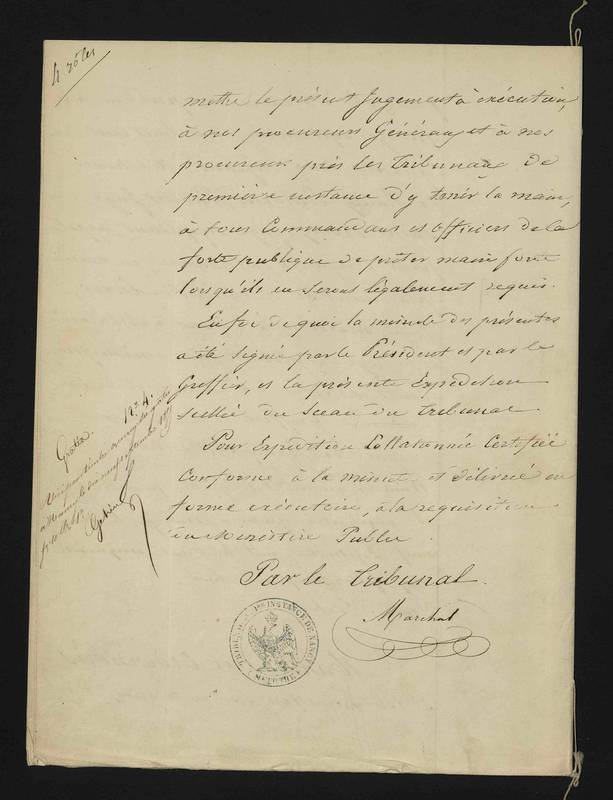 4 rôles
mettre le présent Jugement à exécution,
à nos procureurs Généraux et à nos
procureurs près les Tribunaux de
première instance d'y tenir la main,
à tous Commandans et officiers de la
force publique de prêter main forte
lorsqu'ils en seront légalement requis.
En foi de quoi la minute des présentes
a été signée par le Président et par le
Greffier, et la présente Expédition
scellée du Sceau du Tribunal
Pour Expédition Collationnée Certifiée
Conforme à la minute et délivrée en
forme exécutoire, à la requisition
du Ministère Public
Par le Tribunal.
Marchal
Gratis.
TRIBUNAL DE 1re INSTANCE DE NANCY
(MEURTHE)